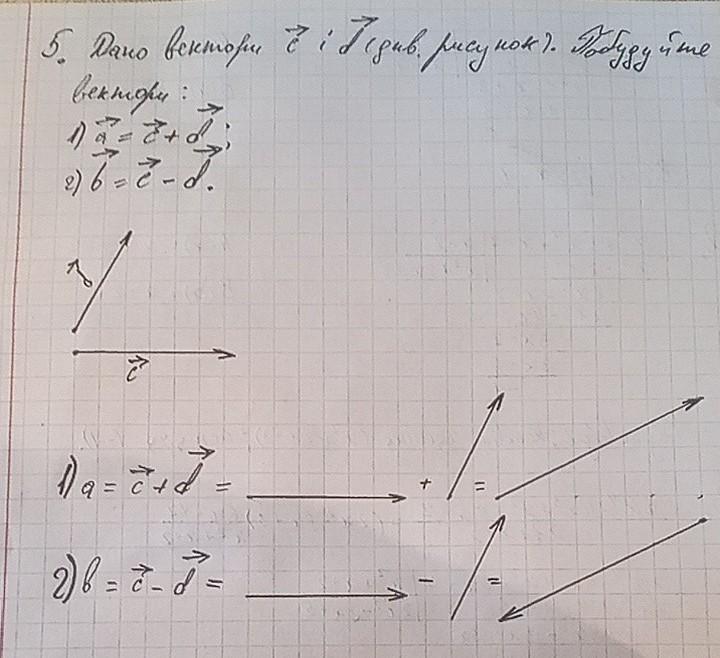 5. Дано вектори c⃗ і d⃗ (див. рисунок). Побудуйте
вектори:
1) a⃗ = c⃗ + d⃗;
2) b⃗ = c⃗ - d⃗.
d⃗
c⃗
1) a = c⃗ + d⃗ = + =
2) b = c⃗ - d⃗ = - =